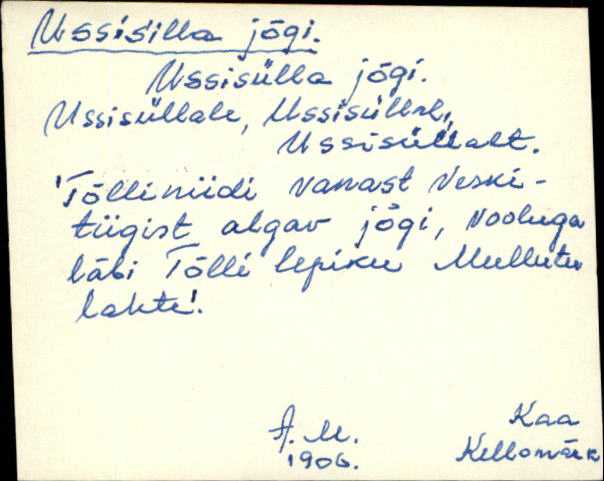 Ussisilla jõgi.
Ussisülla jõgi.
Ussisüllale, Ussisüllal,
Ussisüllalt.
'Tõlliniidi vanast Veski-
tiigist algav jõgi, vooluga
läbi Tõlli lepiku Mullutu
lahte'.
A. M. Kaa
1906. Kellamäe